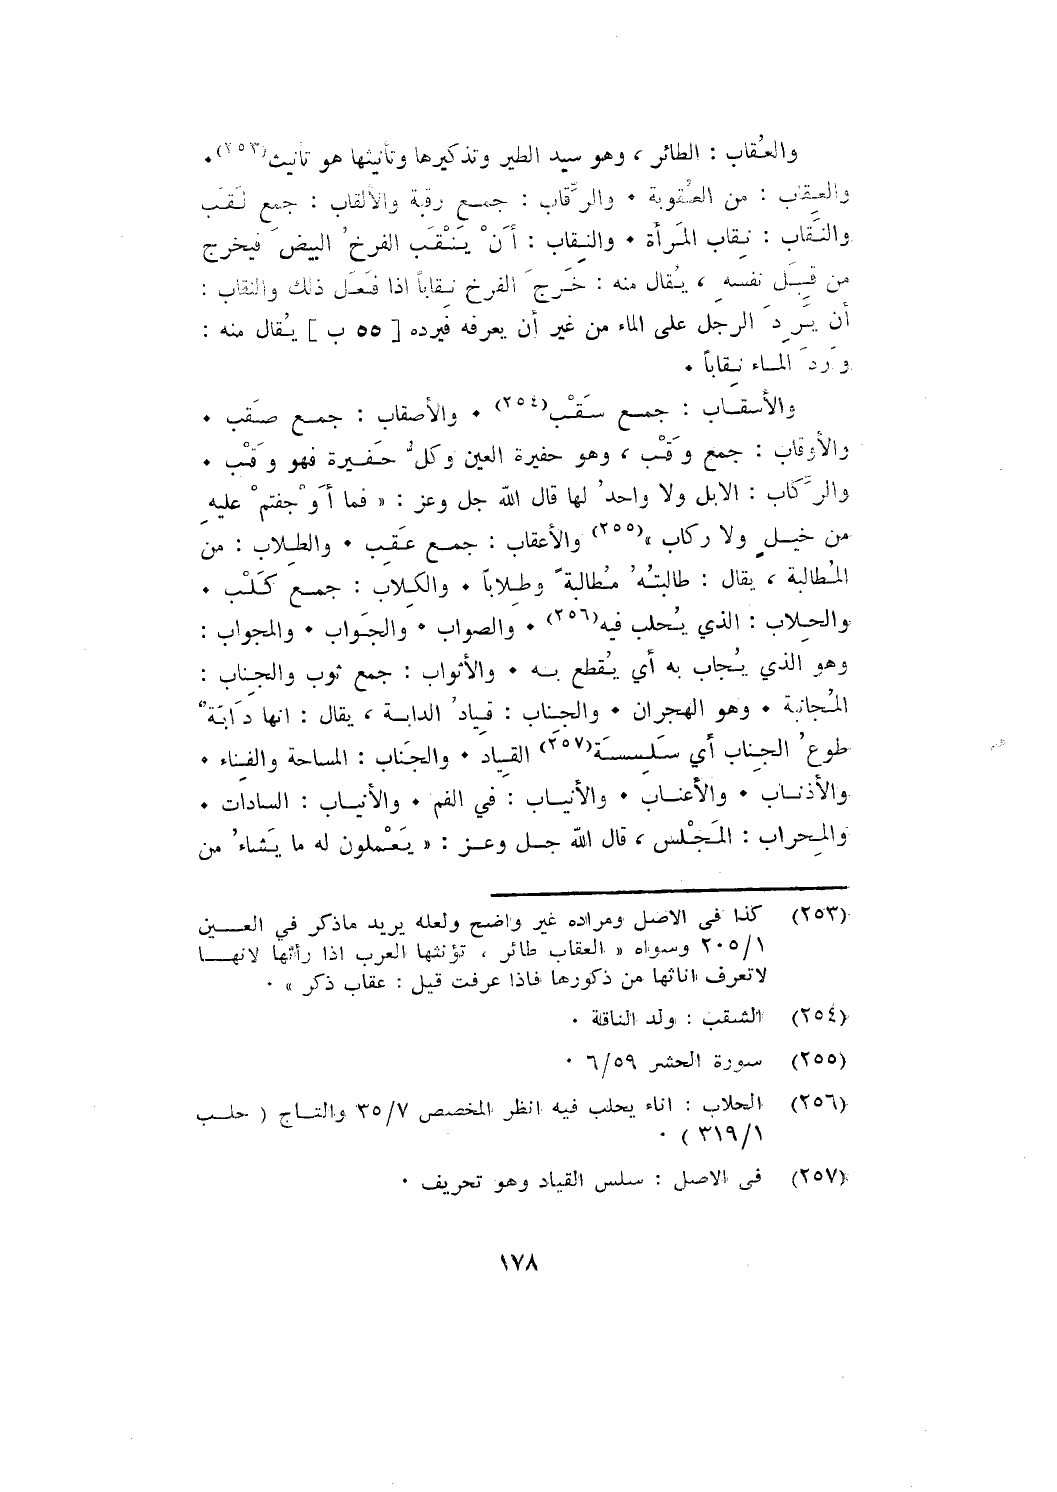 والعُقاب : الطائر ، وهو سيد الطير وتذكيرها وتأنيثها هو تأنيث(٢٥٣) .
والعِقاب : من العُقوبة . والرِّقاب : جمع رقبة والألقاب : جمع لَقَب
والنِّقاب : نِقاب المَرأة . والنِقاب : أَنْ يَنْقَب الفرخُ البيضَ فيخرج
من قِبَل نفسهِ ، يُقال منه : خَرجَ الفرخ نِقاباً اذا فَعَل ذلك والنقاب :
أن يَرِدَ الرجل على الماء من غير أن يعرفه فيرده [ ٥٥ ب ] يُقال منه :
وَرَدَ الماء نِقاباً .
والأسقاب : جمع سَقْب(٢٥٤) . والأصقاب : جمع صَقَب .
والأوقاب : جمع وَقْب ، وهو حفيرة العين وكلُّ حَفيرة فهو وَقْب .
والرِّكاب : الابل ولا واحدُ لها قال الله جل وعز : « فما أَوْجفتم عليهِ
من خيلٍ ولا ركاب »(٢٥٥) والأعقاب : جمع عَقِب . والطِلاب : من
المُطالبة ، يقال : طالبتُهُ مُطالبةً وطِلاباً . والكِلاب : جمع كَلْب .
والحِلاب : الذي يُحلب فيه(٢٥٦) . والصواب . والجَواب . والمجواب :
وهو الذي يُجاب به أي يُقطع به . والأثواب : جمع ثوب والجِناب :
المُجانبة . وهو الهجران . والجِناب : قيادُ الدابة ، يقال : انها دَابَةٌ
طوعُ الجِناب أي سَلِسَة(٢٥٧) القِياد . والجَناب : الساحة والفِناء .
والأذناب . والأعناب . والأنياب : في الفم . والأنياب : السادات .
والمِحراب : المَجْلس ، قال الله جل وعز : « يَعْملون له ما يَشاءُ من
(٢٥٣) كذا في الاصل ومراده غير واضح ولعله يريد ماذكر في العين
٢٠٥/١ وسواه « العقاب طائر ، تؤنثها العرب اذا رأتها لانها
لاتعرف اناثها من ذكورها فاذا عرفت قيل : عقاب ذكر » .
(٢٥٤) الشقب : ولد الناقة .
(٢٥٥) سورة الحشر ٦/٥٩ .
(٢٥٦) الحلاب : اناء يحلب فيه انظر المخصص ٣٥/٧ والتاج ( حلب
٣١٩/١ ) .
(٢٥٧) في الاصل : سلس القياد وهو تحريف .
١٧٨